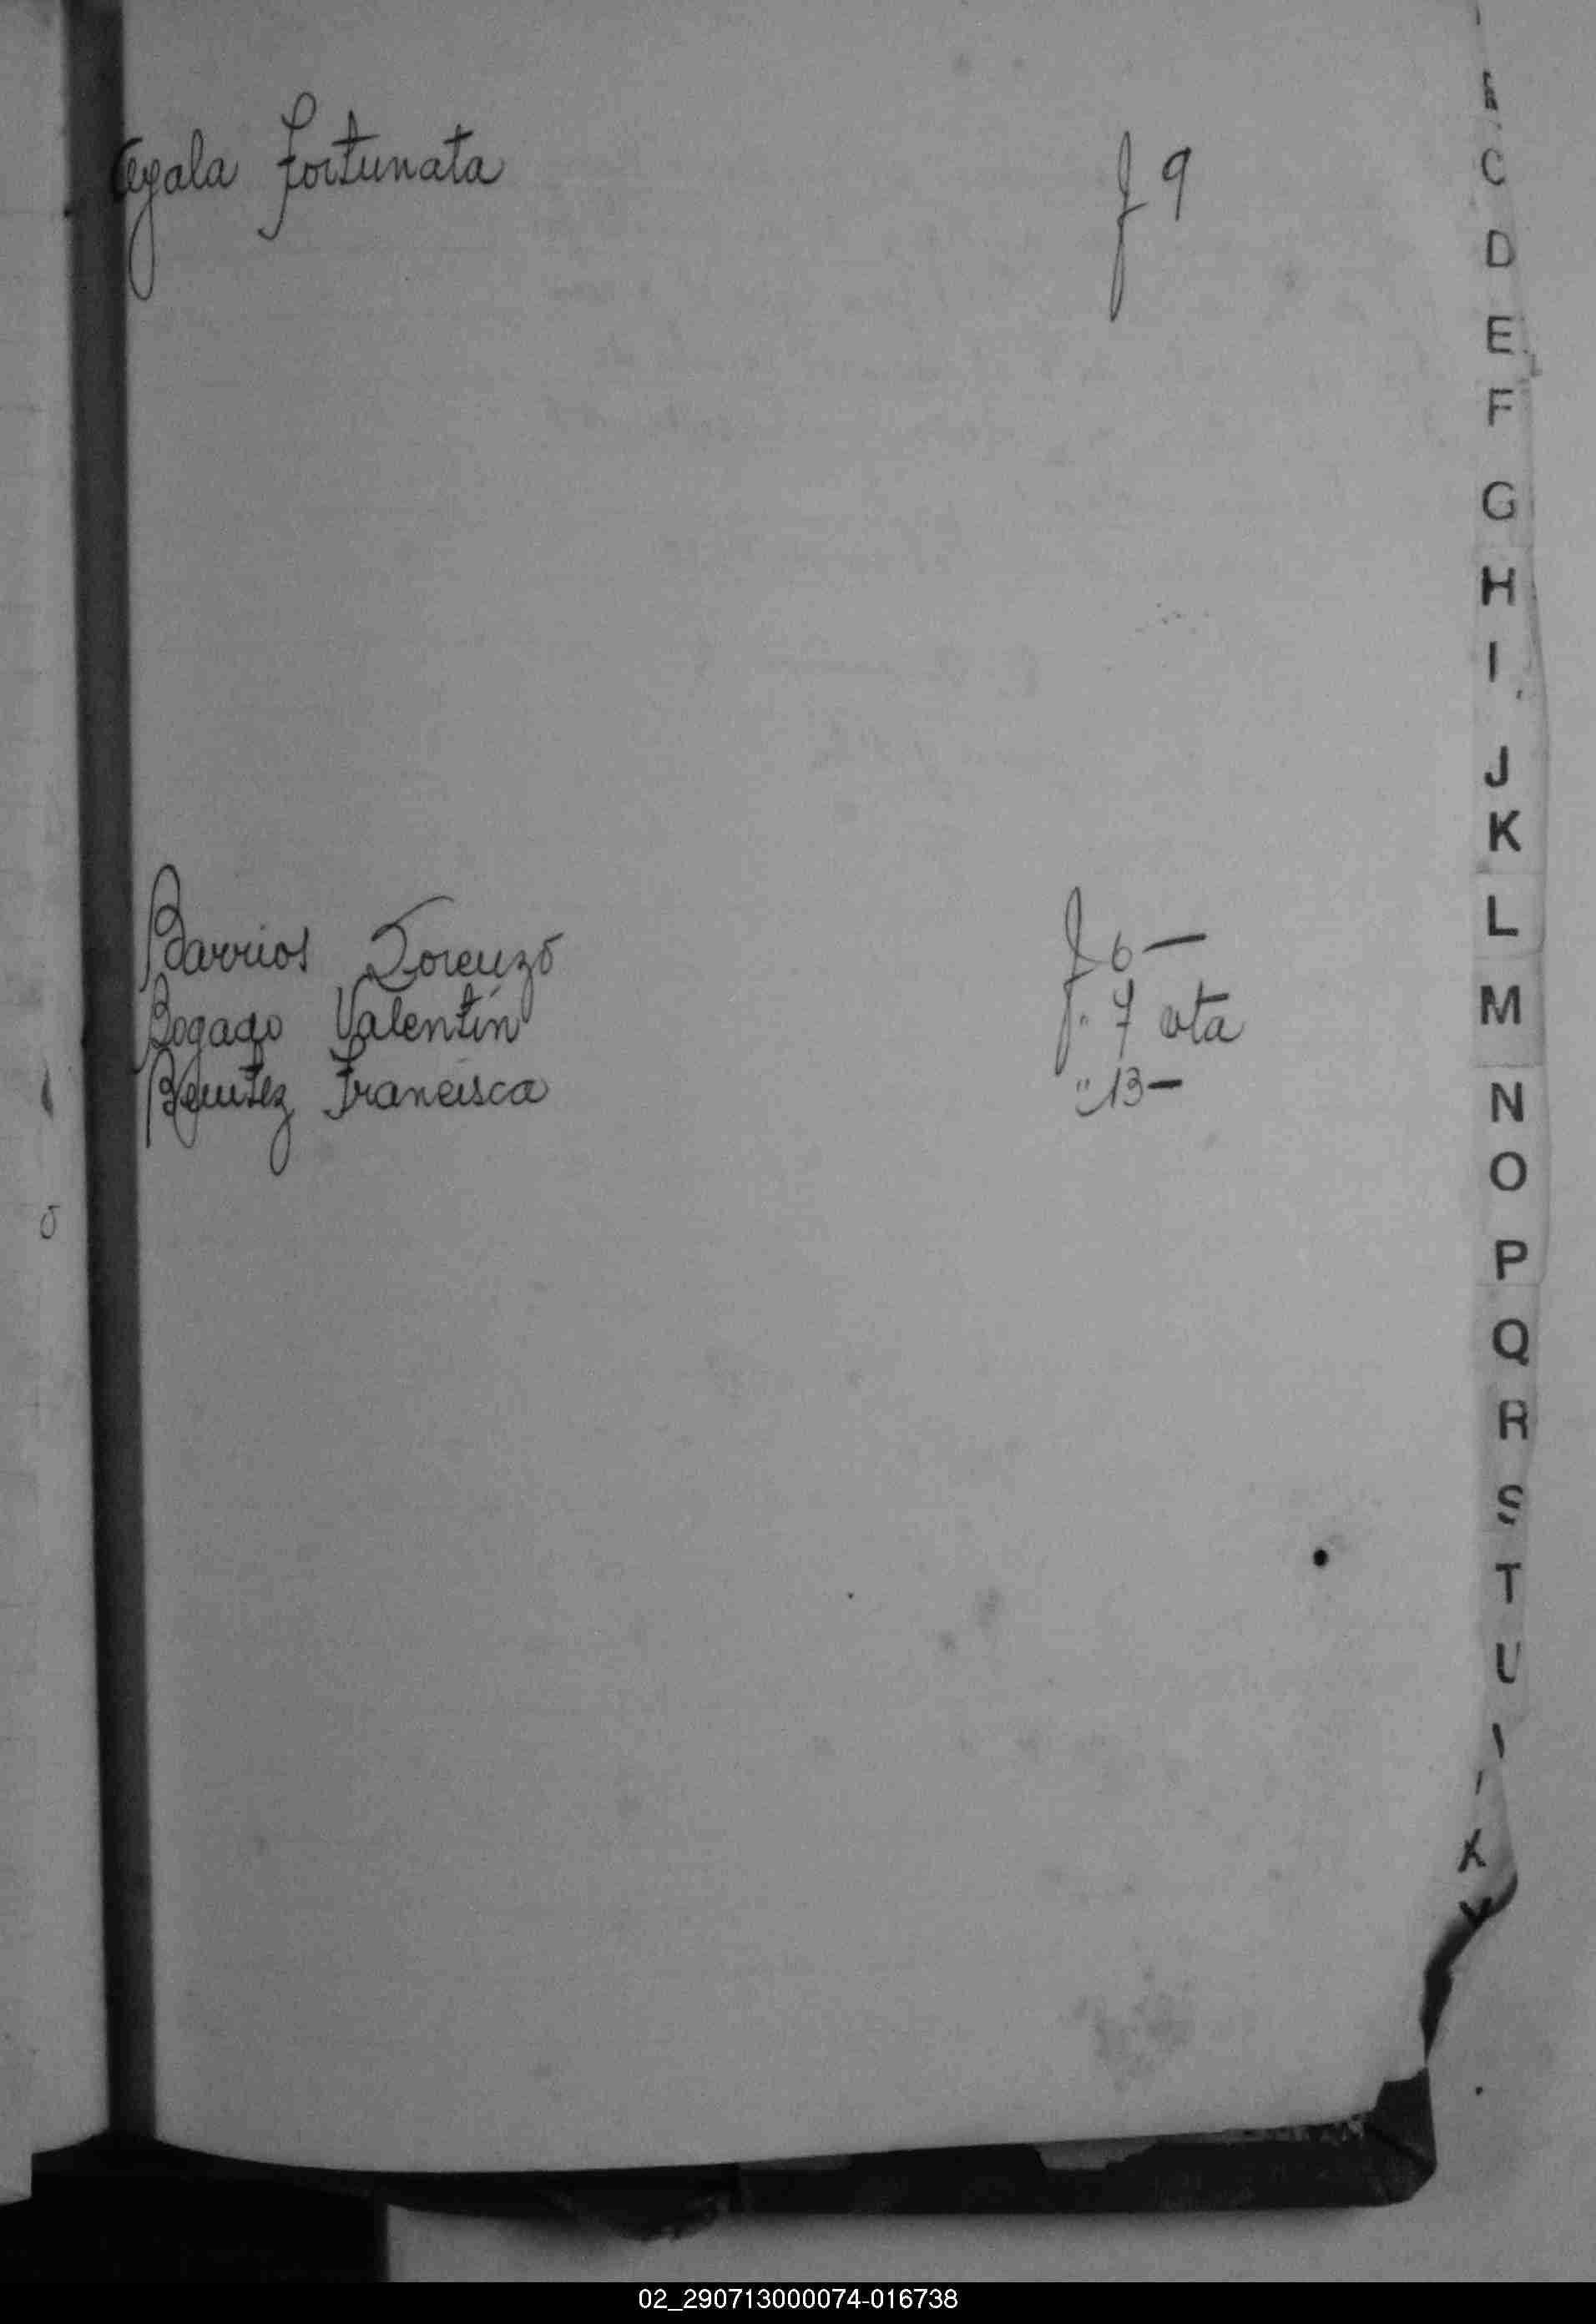 Ayala Fortunata f 9
Barrios Lorenzo f 6 —
Bogado Valentín f. " 7 vta
Benitez Francisca " 13 —
C
D
E
F
G
H
I
J
K
L
M
N
O
P
Q
R
S
T
U
X
Y
02_290713000074-016738